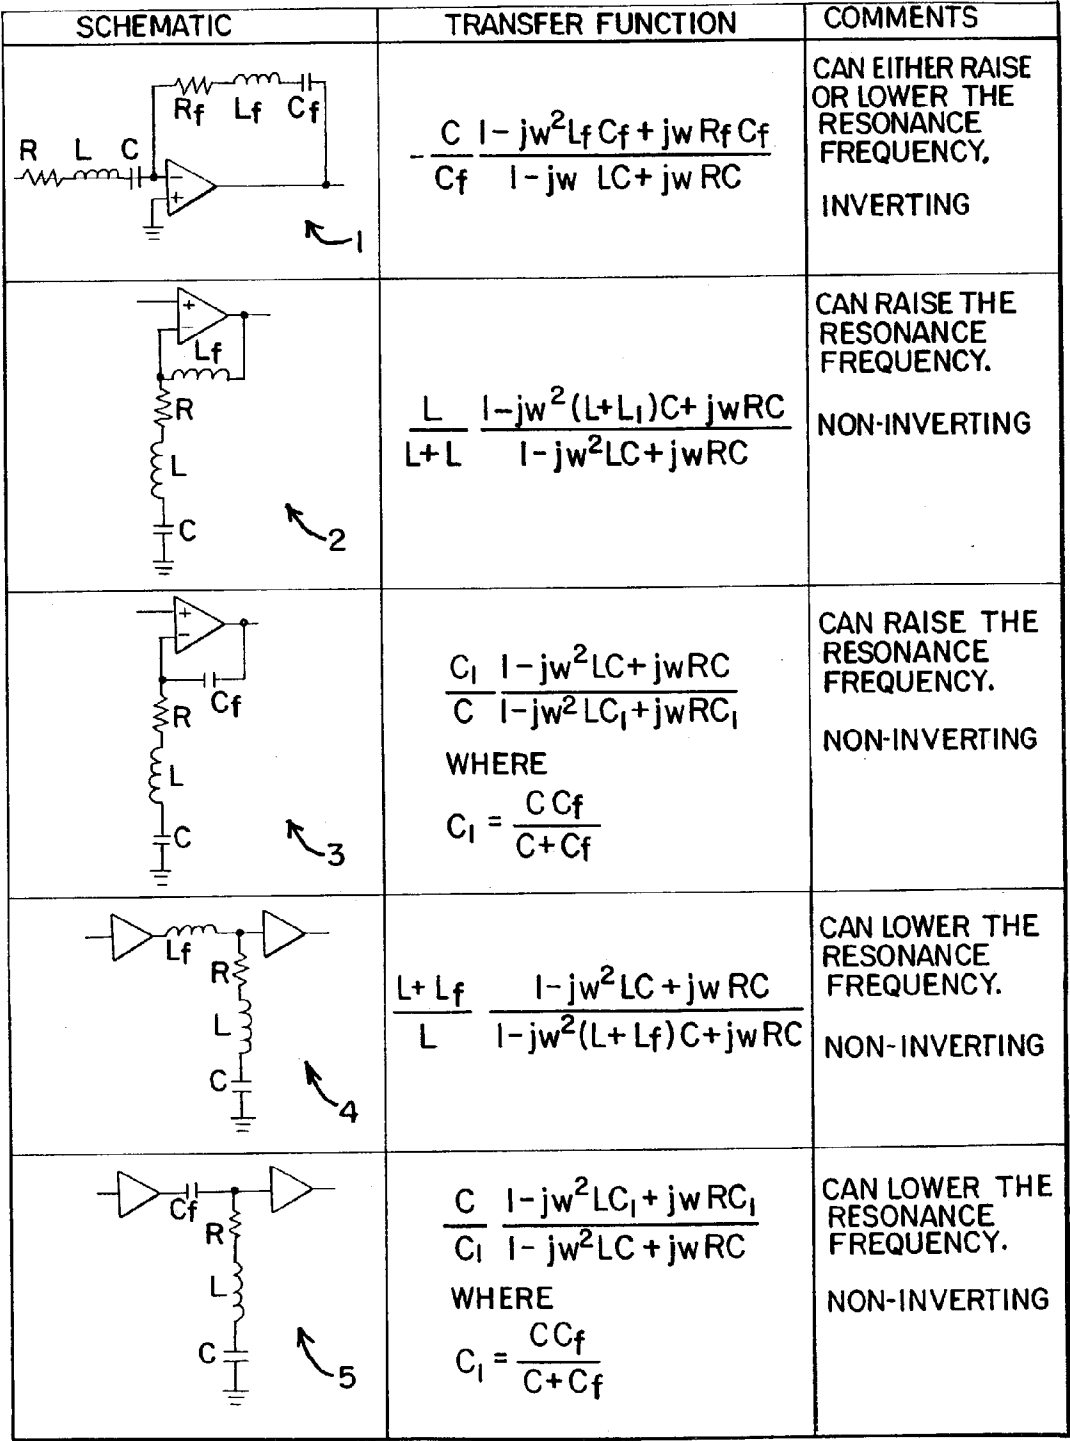 SCHEMATIC TRANSFER FUNCTION COMMENTS
Rf Lf Cf
R L C
-
+
1
- C/Cf (1-jw²LfCf+jwRfCf)/(1-jw LC+jwRC)
CAN EITHER RAISE
OR LOWER THE
RESONANCE
FREQUENCY.
INVERTING
+
-
Lf
R
L
C
2
L/(L+L) (1-jw²(L+L₁)C+jwRC)/(1-jw²LC+jwRC)
CAN RAISE THE
RESONANCE
FREQUENCY.
NON-INVERTING
+
-
Cf
R
L
C
3
C₁/C (1-jw²LC+jwRC)/(1-jw²LC₁+jwRC₁)
WHERE
C₁ = CCf/(C+Cf)
CAN RAISE THE
RESONANCE
FREQUENCY.
NON-INVERTING
Lf
R
L
C
4
(L+Lf)/L (1-jw²LC+jwRC)/(1-jw²(L+Lf)C+jwRC)
CAN LOWER THE
RESONANCE
FREQUENCY.
NON-INVERTING
Cf
R
L
C
5
C/C₁ (1-jw²LC₁+jwRC₁)/(1-jw²LC+jwRC)
WHERE
C₁ = CCf/(C+Cf)
CAN LOWER THE
RESONANCE
FREQUENCY.
NON-INVERTING